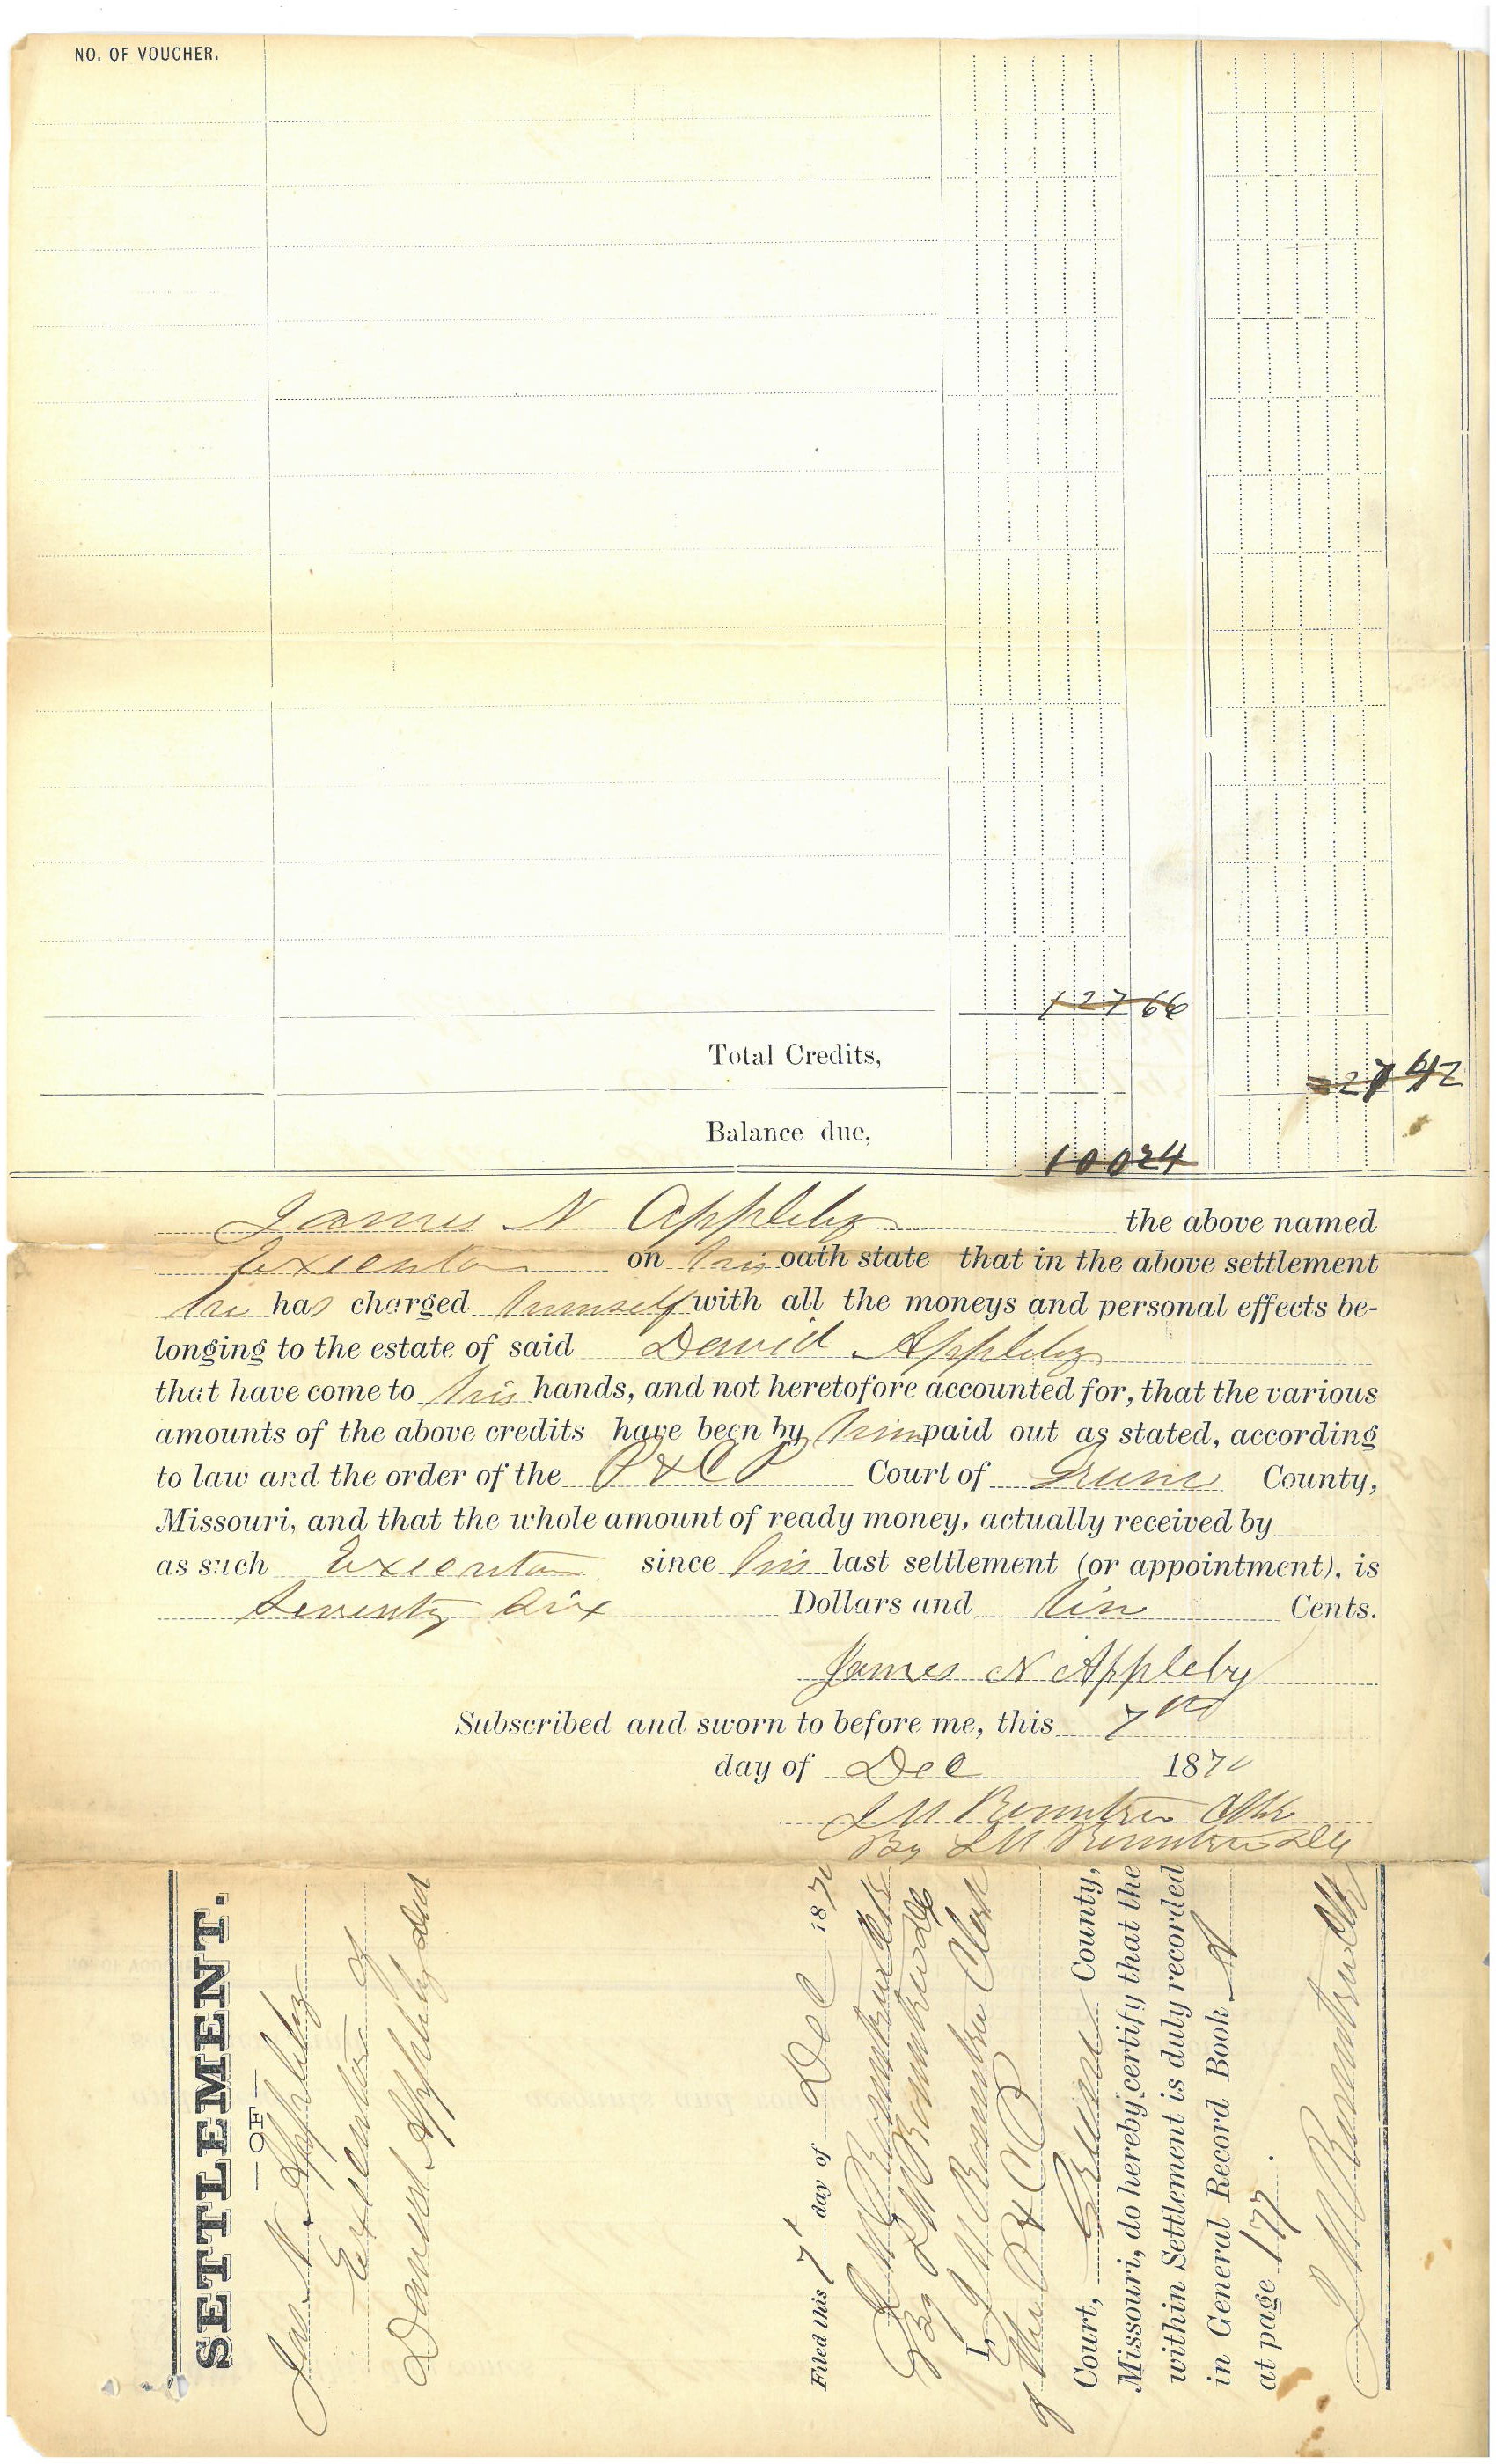 NO. OF VOUCHER.
127 66
Total Credits,
27 42
Balance due,
100 24
James N Appleby the above named
Executor on his oath state that in the above settlement
he has charged himself with all the moneys and personal effects be-
longing to the estate of said David Appleby
that have come to his hands, and not heretofore accounted for, that the various
amounts of the above credits have been by him paid out as stated, according
to law and the order of the P & C P Court of Greene County,
Missouri, and that the whole amount of ready money, actually received by
as such Executor since his last settlement (or appointment), is
Seventy Six Dollars and Ten Cents.
James N Appleby
Subscribed and sworn to before me, this 7th
day of Dec 1870
J M Rountree Clk
By L M Rountree
SETTLEMENT.
—OF—
Jas N. Appleby
Executor of
David Appleby decd
Filed this 7th day of Dec 1870
J M Rountree Clk
By L M Rountree
I, J M Rountree Clerk
of the P & C P
Court, Greene County,
Missouri, do hereby certify that the
within Settlement is duly recorded
in General Record Book A
at page 177.
J M Rountree Clk